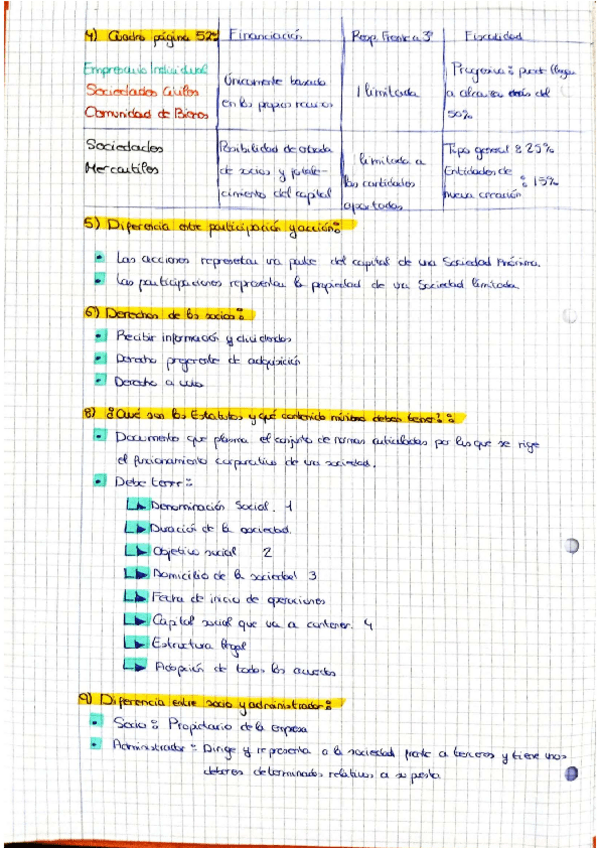 4) Cuadro página 52: Financiación Resp. Frente a 3º Fiscalidad
Empresario Individual
Sociedades Civiles
Comunidad de Bienes
Únicamente basada
en los propios recursos
Ilimitada
Progresivo: puede llegar
a alcanzar más del
50%
Sociedades
Mercantiles
Posibilidad de entrada
de socios y fortale-
cimiento del capital
limitada a
las cantidades
aportadas
Tipo general: 25%
Entidades de
nueva creación : 15%
5) Diferencia entre participación y acción:
Las acciones representan una parte del capital de una Sociedad Anónima.
Las participaciones representan la propiedad de una Sociedad limitada
6) Derechos de los socios:
Recibir información y dividendos
Derecho preferente de adquisición
Derecho a voto
8) ¿Qué son los Estatutos y qué contenido mínimo deben tener?:
Documento que plasma el conjunto de normas articuladas por las que se rige
el funcionamiento corporativo de una sociedad.
Debe tener:
Denominación Social. 1
Duración de la sociedad.
Objetivo social 2
Domicilio de la sociedad 3
Fecha de inicio de operaciones
Capital social que va a contener. 4
Estructura legal
Adopción de todos los acuerdos
9) Diferencia entre socio y administrador:
Socio: Propietario de la empresa
Administrador: Dirige y representa a la sociedad frente a terceros y tiene unos
deberes determinados relativos a su puesto